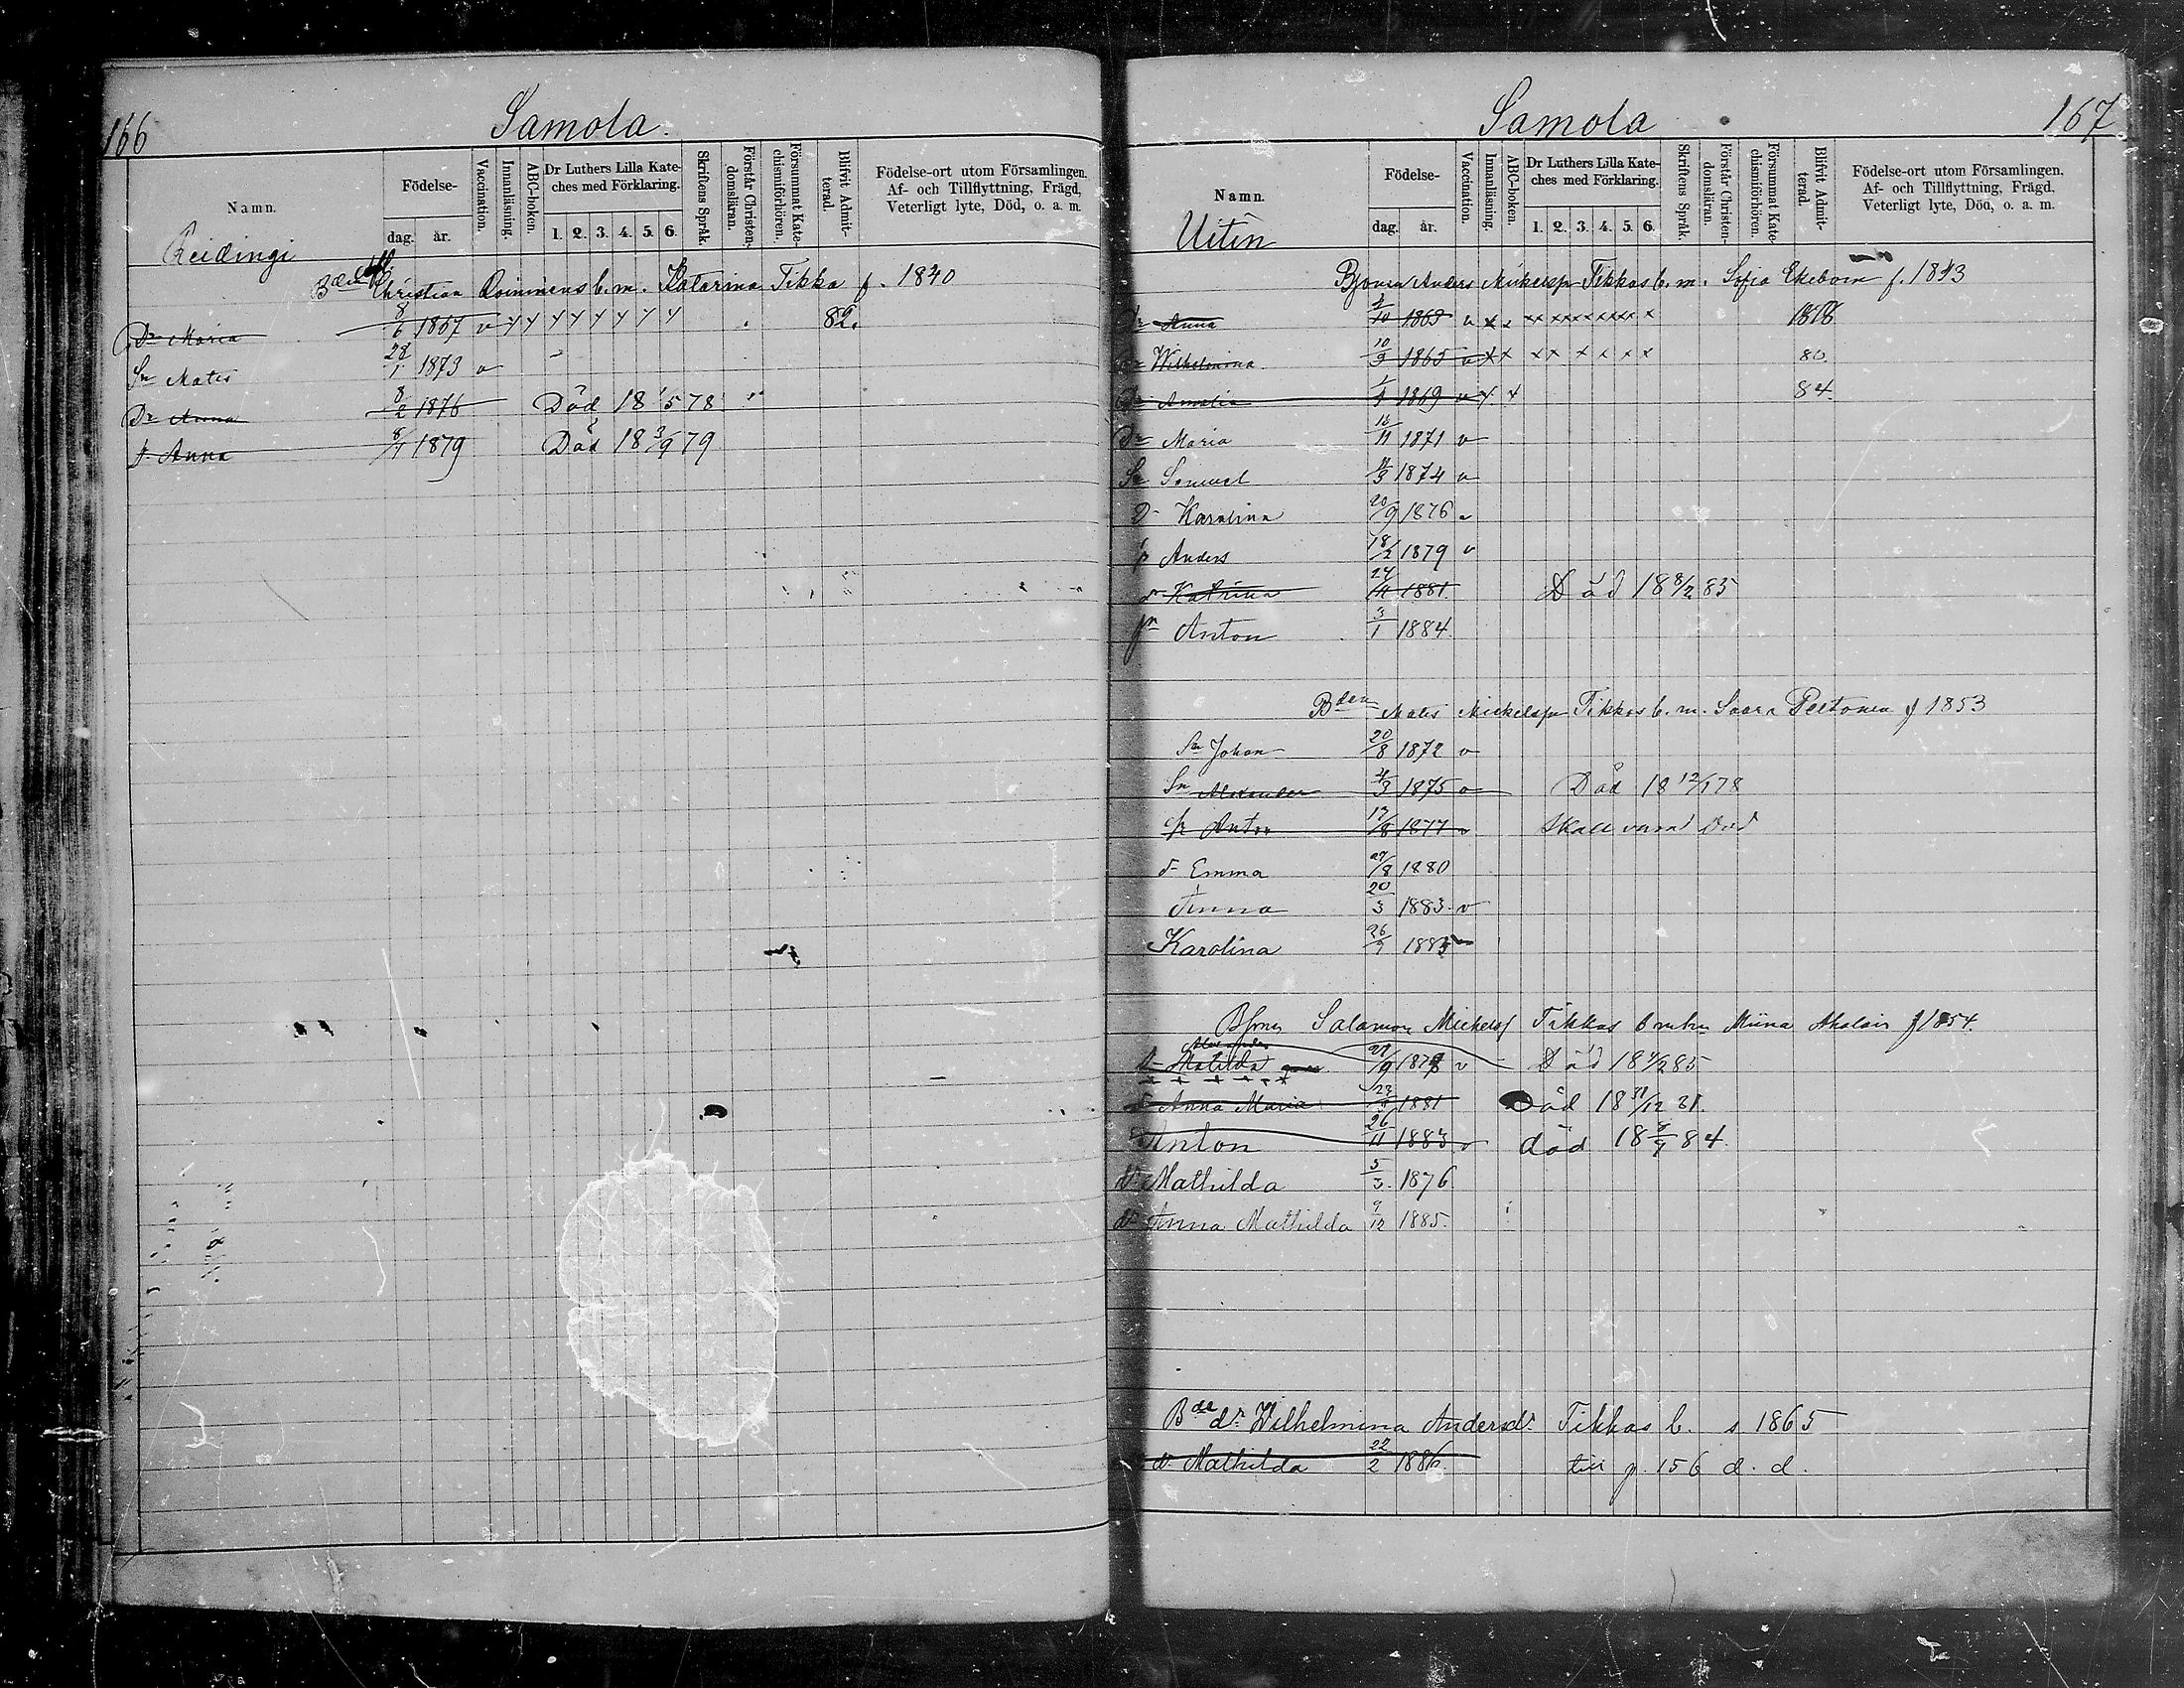 166
Samola.
Namn.
Födelse-
dag. år.
Vaccination.
Innanläsning.
ABC-boken.
Dr Luthers Lilla Kate-
ches med Förklaring.
1. 2. 3. 4. 5. 6.
Skriftens Språk.
Förstår Christen-
domsläran.
Försummat Kate-
chismiförhören.
Blifvit Admit-
terad.
Födelse-ort utom Församlingen.
Af- och Tillflyttning, Frägd,
Veterligt lyte, Död, o. a. m.
Reidingi
Christian b. m. Katarina Tikka f. 1840
Dr Maria 8/6 1867 v 82.
Sn Mats 28/1 1873 v
Dr Anna 8/2 1876 Död 18 1/5 78
d. Anna 8/1 1879 Död 18 3/9 79
167
Samola
Namn.
Födelse-
dag. år.
Vaccination.
Innanläsning.
ABC-boken.
Dr Luthers Lilla Kate-
ches med Förklaring.
1. 2. 3. 4. 5. 6.
Skriftens Språk.
Förstår Christen-
domsläran.
Försummat Kate-
chismiförhören.
Blifvit Admit-
terad.
Födelse-ort utom Församlingen.
Af- och Tillflyttning, Frägd,
Veterligt lyte, Död, o. a. m.
Uitin
Anders Mickelsn Tikkas b. m. Sofia Ekebom f. 1843
Dr Anna 2/10 1863 v x x x x x x x x 1878
Dr Wilhelmina 10/3 1865 v x x x x x x x x 80.
Dr Amalia 1869 v x x 84
Dr Maria 16/11 1871 v
Sn Samuel 1874 v
D Karolina 20/9 1876 v
Sn Anders 18/2 1879 v
d Katrina 24/11 1881. Död 18 8/2 85
sn Anton 3/1 1884
Bden Mats Mickelsn Tikkas b. m. Saara Peltonen f 1853
Sn Johan 20/8 1872 v
Sn Alexander 4/3 1875 v Död 18 12/1 78
Sn Anton 17/8 1877 v Skall vara Död
d Emma 27/8 1880
Anna 20/3 1883. v
Karolina 26/9 1885 v
Salamon Mickelsn Tikkas b m Miina f 1854.
Alexander
d Matilda 27/9 v Död 18 4/2 85
d Anna Maria 1881 Död 18 31/12 81.
Anton 26/11 1883 v död 18 84.
dr Mathilda 5/3. 1876
dr Anna Mathilda 9/12 1885.
Bde dr Wilhelmina Andersdr Tikkas b. s. 1865
dr Mathilda 22/2 1886. till p. 156 d. d.